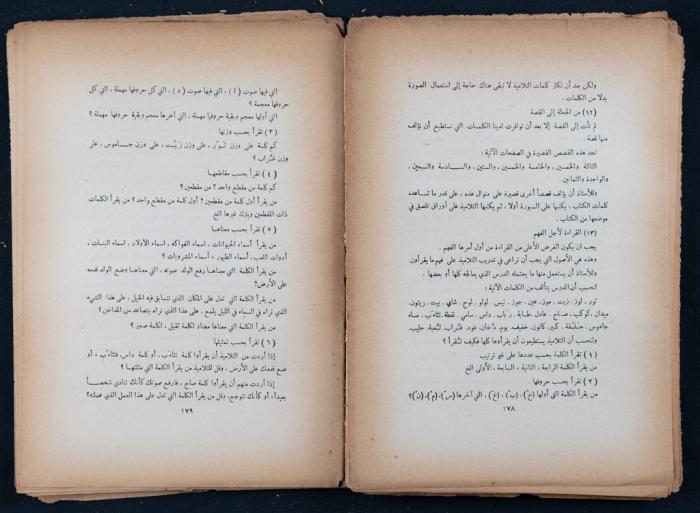 ولكن بعد أن تكثر كلمات التلاميذ لا تبقى هناك حاجة إلى استعمال الصورة
بدلا من الكلمات .
(١٢) من الجملة إلى القصة
لم نأت إلى القصة إلا بعد أن توافرت لدينا الكلمات التي نستطيع أن نؤلف
منها قصة .
نجد هذه القصص القصيرة في الصفحات الآتية :
الثالثة والخمسين ، والخامسة والخمسين ، والستين ، والسادسة والسبعين ،
والواحدة والثمانين .
وللأستاذ أن يؤلف قصصاً أخرى قصيرة على منوال هذه ، على قدر ما تساعده
كلمات الكتاب ، يكتبها على السبورة أولا ، ثم يكتبها التلاميذ على أوراق تلصق في
موضعها من الكتاب .
(١٣) القراءة لأجل الفهم
يجب ان يكون الغرض الأعلى من القراءة من أول أمرها الفهم .
وهذه هي الأصول التي يجب أن تراعى في تدريب التلاميذ على فهم ما يقرأون .
وللأستاذ أن يستعمل منها ما يحتمله الدرس الذي يعالجه كلها أو بعضها .
لنحسب أن الدرس يتألف من الكلمات الآتية :
ثور . لوز . زيت . موز . عين . جوز . تيس . لولو . لوح . شاي . بيت . زيتون .
ميدان . كوكب . صباح . عادل . طابة . باب . داس . سامي . نقطة . تثاءب . صاد
جاموس . حلقة . كبير . كانون . خفيف . يوم . دخان . عود . غراب . لعبة . حليب
ولنحسب أن التلاميذ يستطيعون أن يقرأوها كلها فكيف تقرأ ؟
(١) تقرأ الكلمة بحسب عددها على غير ترتيب
من يقرأ الكلمة الرابعة ، الثانية ، السابعة ، الأولى الخ
(٢) تقرأ بحسب حروفها .
من يقرأ الكلمة التي أولها (خ) ، (ب) ، (ع) ، التي آخرها (س) ، (م) ، (ن) ؟
١٧٨
التي فيها صوت (أ) ، التي فيها صوت (و) ، التي كل حروفها مهملة ، التي كل
حروفها معجمة ؟
التي أولها معجم وبقية حروفها مهملة ، التي آخرها معجم وبقية حروفها مهملة ؟
(٣) تقرأ بحسب وزنها
كم كلمة على وزن ثور ، على وزن زيت ، على وزن جاموس ، على
وزن غراب ؟
(٤) تقرأ بحسب مقاطعها
كم كلمة من مقطع واحد ؟ من مقطعين ؟
من يقرأ أول كلمة من مقطعين ؟ أول كلمة من مقطع واحد ؟ من يقرأ الكلمات
ذات المقطعين ويترك غيرها الخ
(٥) تقرأ بحسب معناها
من يقرأ أسماء الحيوانات ، اسماء الفواكه ، اسماء الأولاد ، اسماء البنات ،
أدوات اللعب ، أسماء الطيور ، أسماء المشروبات ؟
من يقرأ الكلمة التي معناها رفع الولد صوته ، التي معناها وضع الولد قدمه
على الأرض ؟
من يقرأ الكلمة التي تدل على المكان الذي تتسابق فيه الخيل ، على هذا الشيء
الذي نراه في السماء في الليل يلمع ، على هذا الذي نراه يتصاعد من المداخن ؟
من يقرأ الكلمة التي معناها مضاد لكلمة ثقيل ، لكلمة صغير ؟
(٦) تقرأ بحسب تمثيلها
إذا أردت من التلاميذ أن يقرأوا كلمة تثاءب ، أو كلمة داس ، فتثاءب ، أو
ضع قدمك على الأرض ، وقل للتلاميذ من يقرأ الكلمة التي مثلتها ؟
إذا أردت منهم أن يقرأوا كلمة صاح ، فارفع صوتك كأنك تنادي شخصاً
بعيداً ، أو كأنك تتوجع ، وقل من يقرأ الكلمة التي تدل على هذا العمل الذي عملته ؟
١٧٩